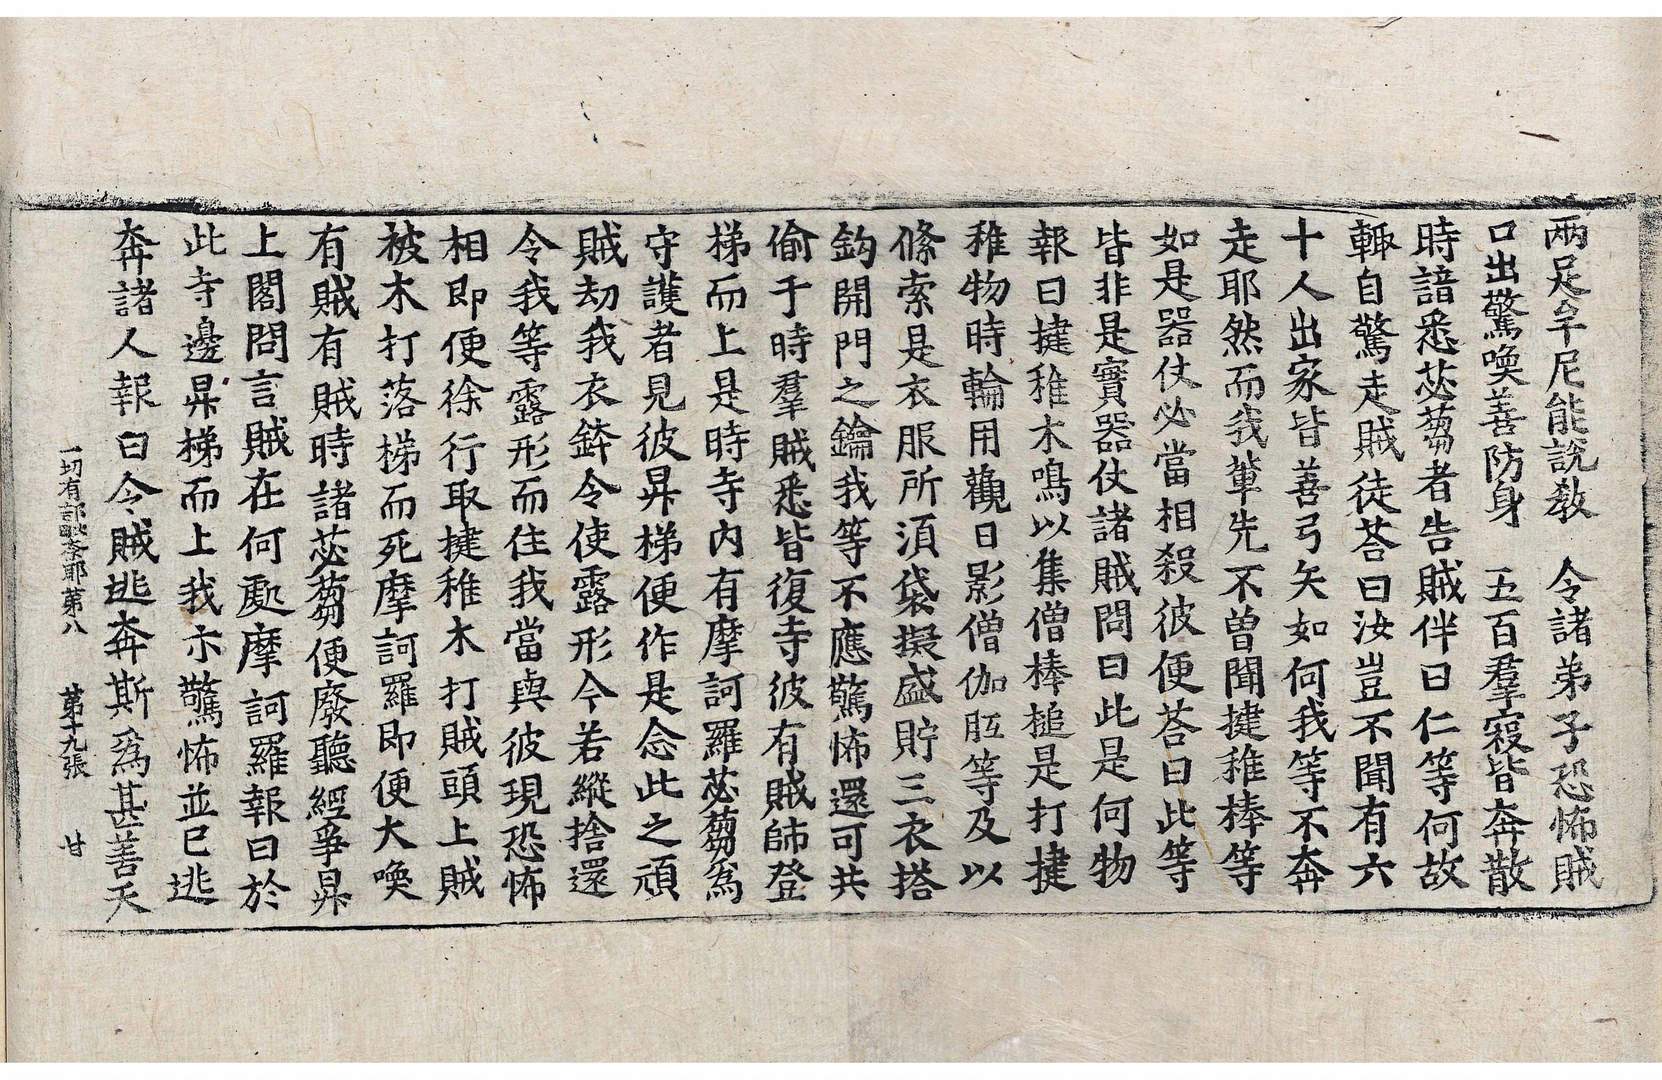 兩足牟尼能說教　令諸弟子恐怖賊
口出驚喚善防身　五百羣寇皆奔散
時諳悉苾芻者告賊伴曰仁等何故
輙自驚走賊徒荅曰汝豈不聞有六
十人出家皆善弓矢如何我等不奔
走耶然而我軰先不曾聞揵稚棒等
如是器仗必當相殺彼便荅曰此等
皆非是實器仗諸賊問曰此是何物
報曰揵稚木鳴以集僧棒槌是打揵
稚物時輪用觀日影僧伽胝等及以
絛索是衣服所湏袋擬盛貯三衣搭
鈎開門之鑰我等不應驚怖還可共
偷于時羣賊悉皆復寺彼有賊師登
梯而上是時寺內有摩訶羅苾芻為
守護者見彼昇梯便作是念此之頑
賊劫我衣鉢令使露形今若縱捨還
令我等露形而住我當與彼現恐怖
相即便徐行取揵稚木打賊頭上賊
被木打落梯而死摩訶羅即便大喚
有賊有賊時諸苾芻便廢聽經爭昇
上閣問言賊在何處摩訶羅報曰於
此寺邊昇梯而上我亦驚怖並已逃
奔諸人報曰令賊逃奔斯為甚善天
一切有部毗奈耶苐八　苐十九張　甘